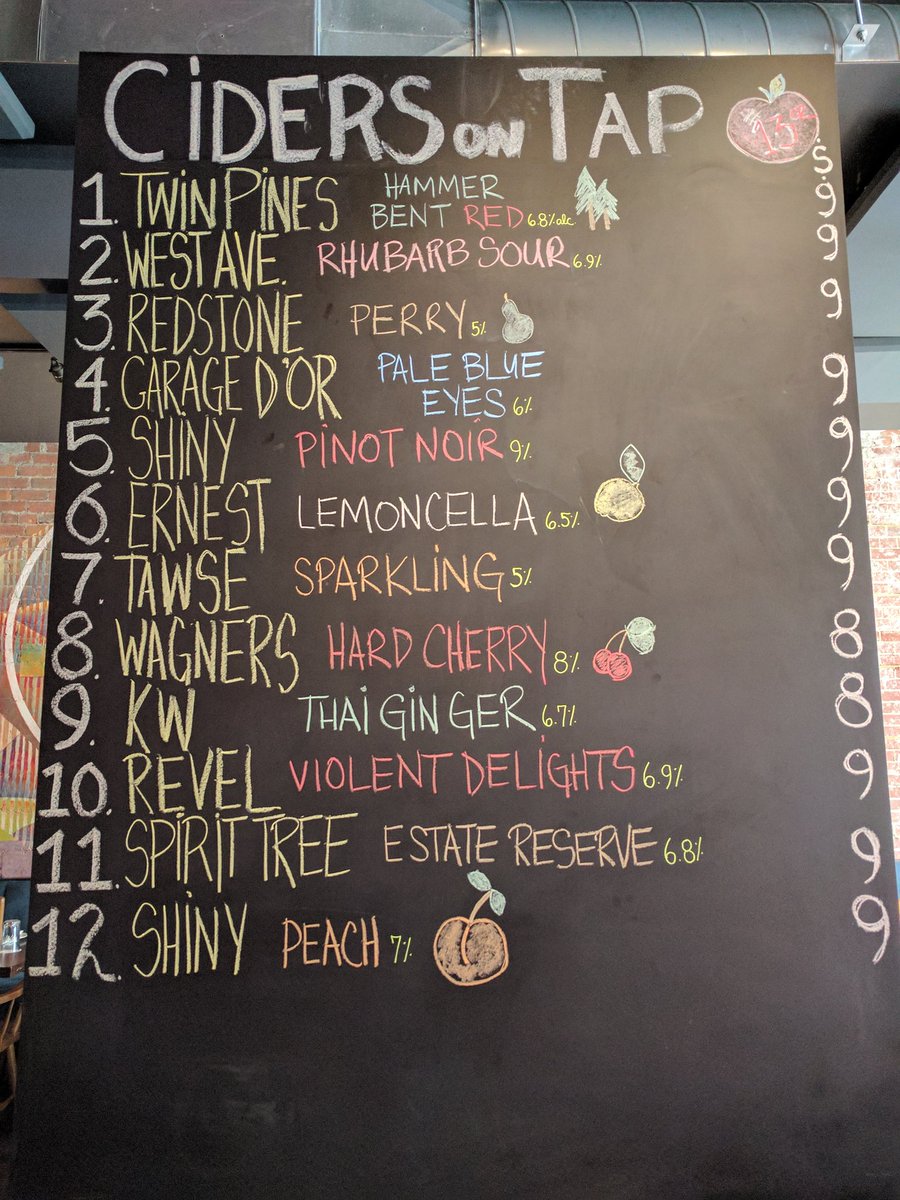 CiDERS ON TAP
$.
1. TWIN PINES HAMMER BENT RED 6.8% alc. 9
2. WEST AVE. RHUBARB SOUR 6.9% 9
3. REDSTONE PERRY 5% 9
4. GARAGE D'OR PALE BLUE EYES 6% 9
5. SHINY PINOT NOIR 9% 9
6. ERNEST LEMONCELLA 6.5% 9
7. TAWSE SPARKLING 5% 9
8. WAGNERS HARD CHERRY 8% 8
9. KW THAI GINGER 6.7% 8
10. REVEL VIOLENT DELIGHTS 6.9% 9
11. SPIRIT TREE ESTATE RESERVE 6.8% 9
12. SHINY PEACH 7% 9